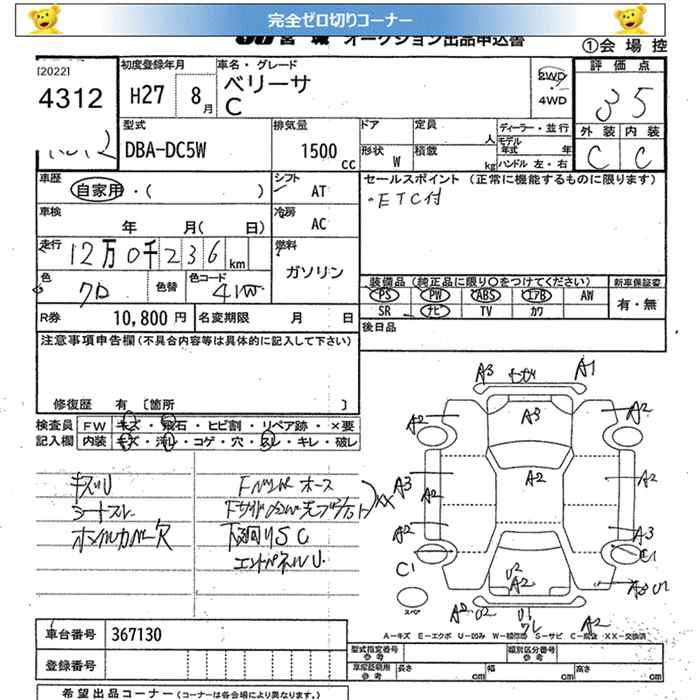 完全ゼロ切りコーナー
JU 宮城 オークション出品申込書 ①会場控
[2022]
4312
初度登録年月
H27 8月
車名・グレード
ベリーサ
C
2WD
4WD
評価点
3.5
外装 内装
C C
型式
DBA-DC5W
排気量
1500cc
ドア 定員 人
形状 W 積載 kg
ディーラー・並行
モデル年式 年
ハンドル 左・右
車歴
自家用・( )
シフト
AT
セールスポイント (正常に機能するものに限ります)
・ETC付
車検
年 月( 日)
冷房
AC
走行
12万0千236km
燃料
ガソリン
色
クロ
色替
色コード
41W
装備品 (純正品に限り○をつけてください) 新車保証書
PS PW ABS エアB AW 有・無
SR ナビ TV カワ
R券 10,800円 名変期限 月 日
後日品
注意事項申告欄(不具合内容等は具体的に記入して下さい)
修復歴 有 〔箇所 〕
検査員記入欄
FW キズ・飛石・ヒビ割・リペア跡・×要
内装 キズ・汚レ・コゲ・穴・スレ・キレ・破レ
キズU
シートスレ
Fバンパーホース
下廻りSC
エンドパネルU
XX
A3 A1
A2 A3 A2
A3 A2 A2 A2
A2 A3
C1 C1
U2 A2
A2 U2 U1 A2 A3 U1
スペア
A-キズ E-エクボ U-凹み W-補修跡 S-サビ C-腐蝕 XX-交換済
車台番号 367130
登録番号
型式指定番号 参考
類別区分番号 参考
車庫証明用 参考 長さ cm 幅 cm 高さ cm
希望出品コーナー (コーナーは各会場により異なります。)